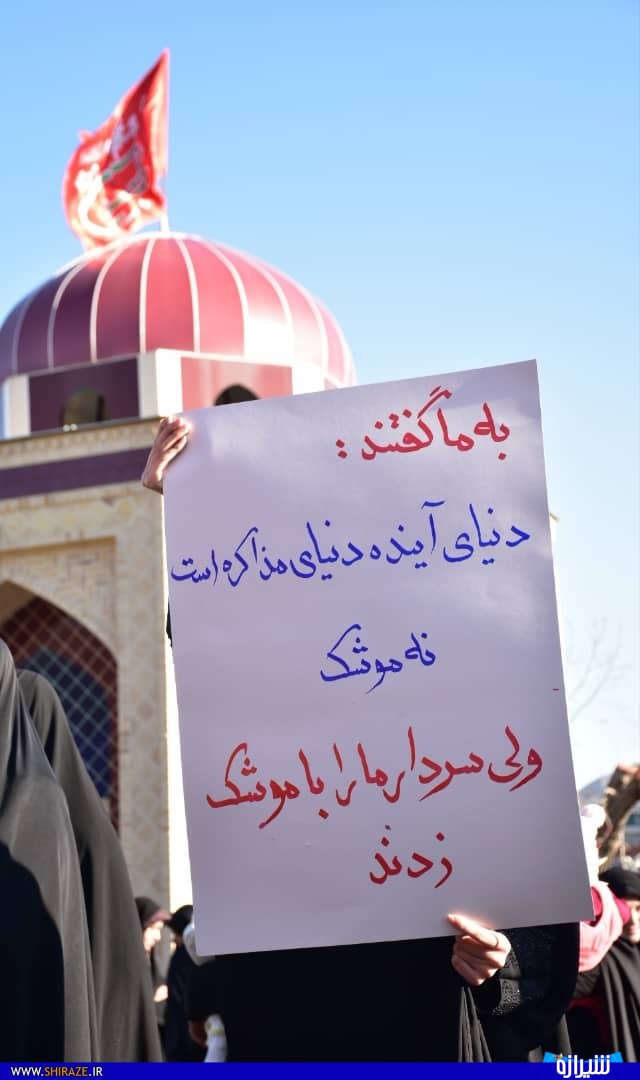 به ما گفتند :
دنیای آینده دنیای مذاکره است
نه موشک
ولی سردار ما را با موشک
زدند
WWW.SHIRAZE.IR
شیرازه